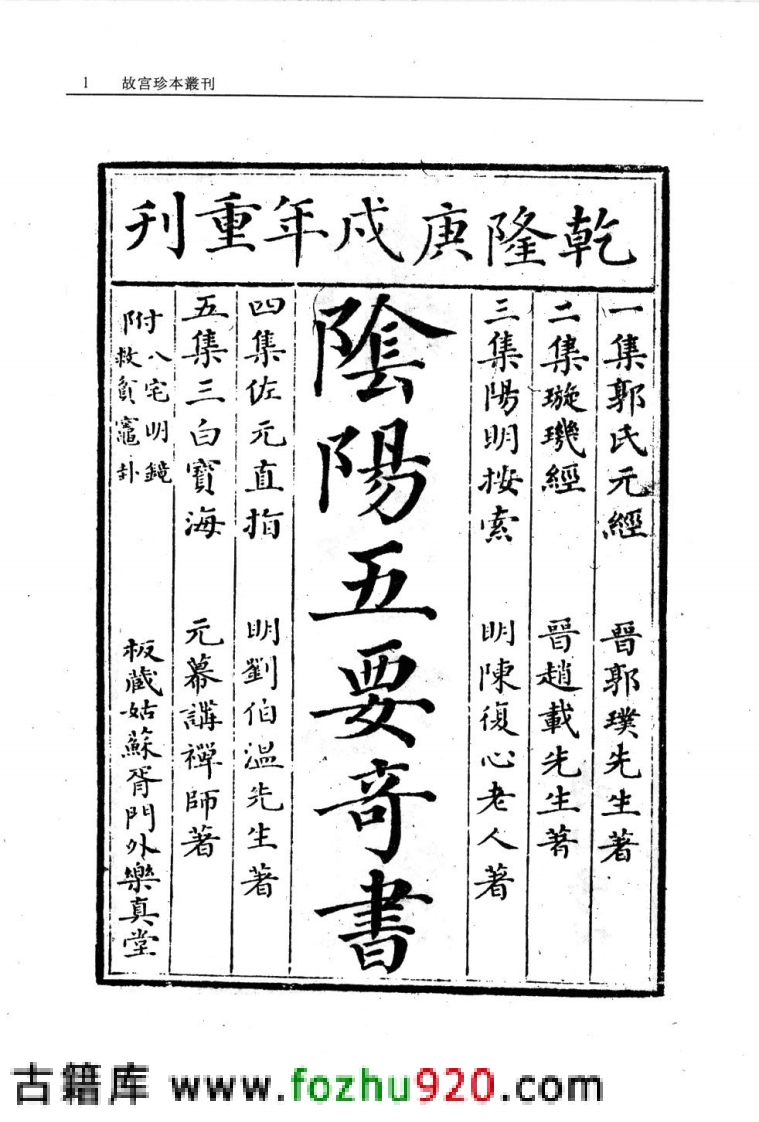 1 故宮珍本叢刊
乾隆庚戌年重刊
一集郭氏元經 晉郭璞先生著
二集璇璣經 晉趙載先生著
三集陽明按索 明陳復心老人著
陰陽五要奇書
四集佐元直指 明劉伯溫先生著
五集三白寶海 元幕講禪師著
附八宅明鏡
附救貧竈卦
板藏姑蘇胥門外樂真堂
古籍库 www.fozhu920.com